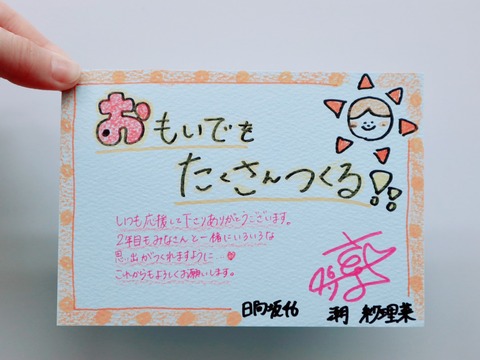 おもいでを
たくさんつくる!!
いつも応援して下さりありがとうございます。
2年目もみなさんと一緒にいろいろな
思い出がつくれますように…
これからもよろしくお願いします。
日向坂46 潮 紗理菜